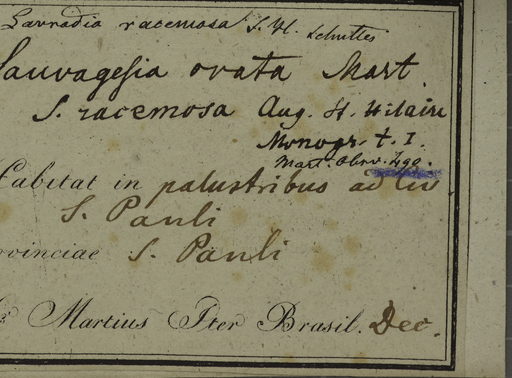 Lavradia racemosa S. H. Schultes
Sauvagesia ovata Mart.
S. racemosa Aug. S. Hilaire
Monogr. t. I.
Mart. Obrv. 490.
Habitat in palustribus ad Civ.
S. Pauli
rovinciae S. Pauli
Martius Iter Brasil. Dec.